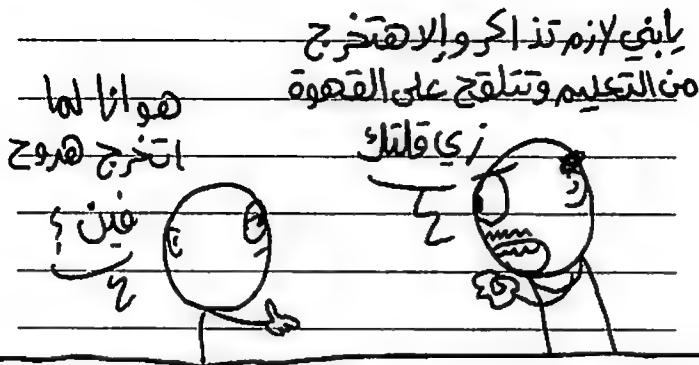 يابني لازم تذاكر وإلا هتخرج
من التعليم وتتلقح على القهوة
زي قلتك
هو انا لما
اتخرج هروح
فين ؟